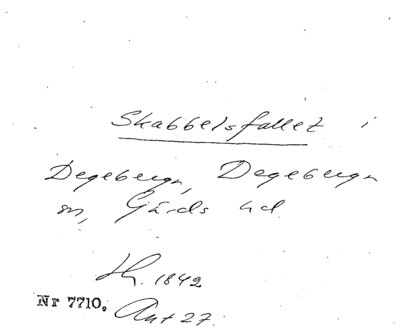 Skabbelsfallet i
Degeberga, Degeberga
sn, Gärds hd
Th. 1842
Nr 7710. Ant 27.